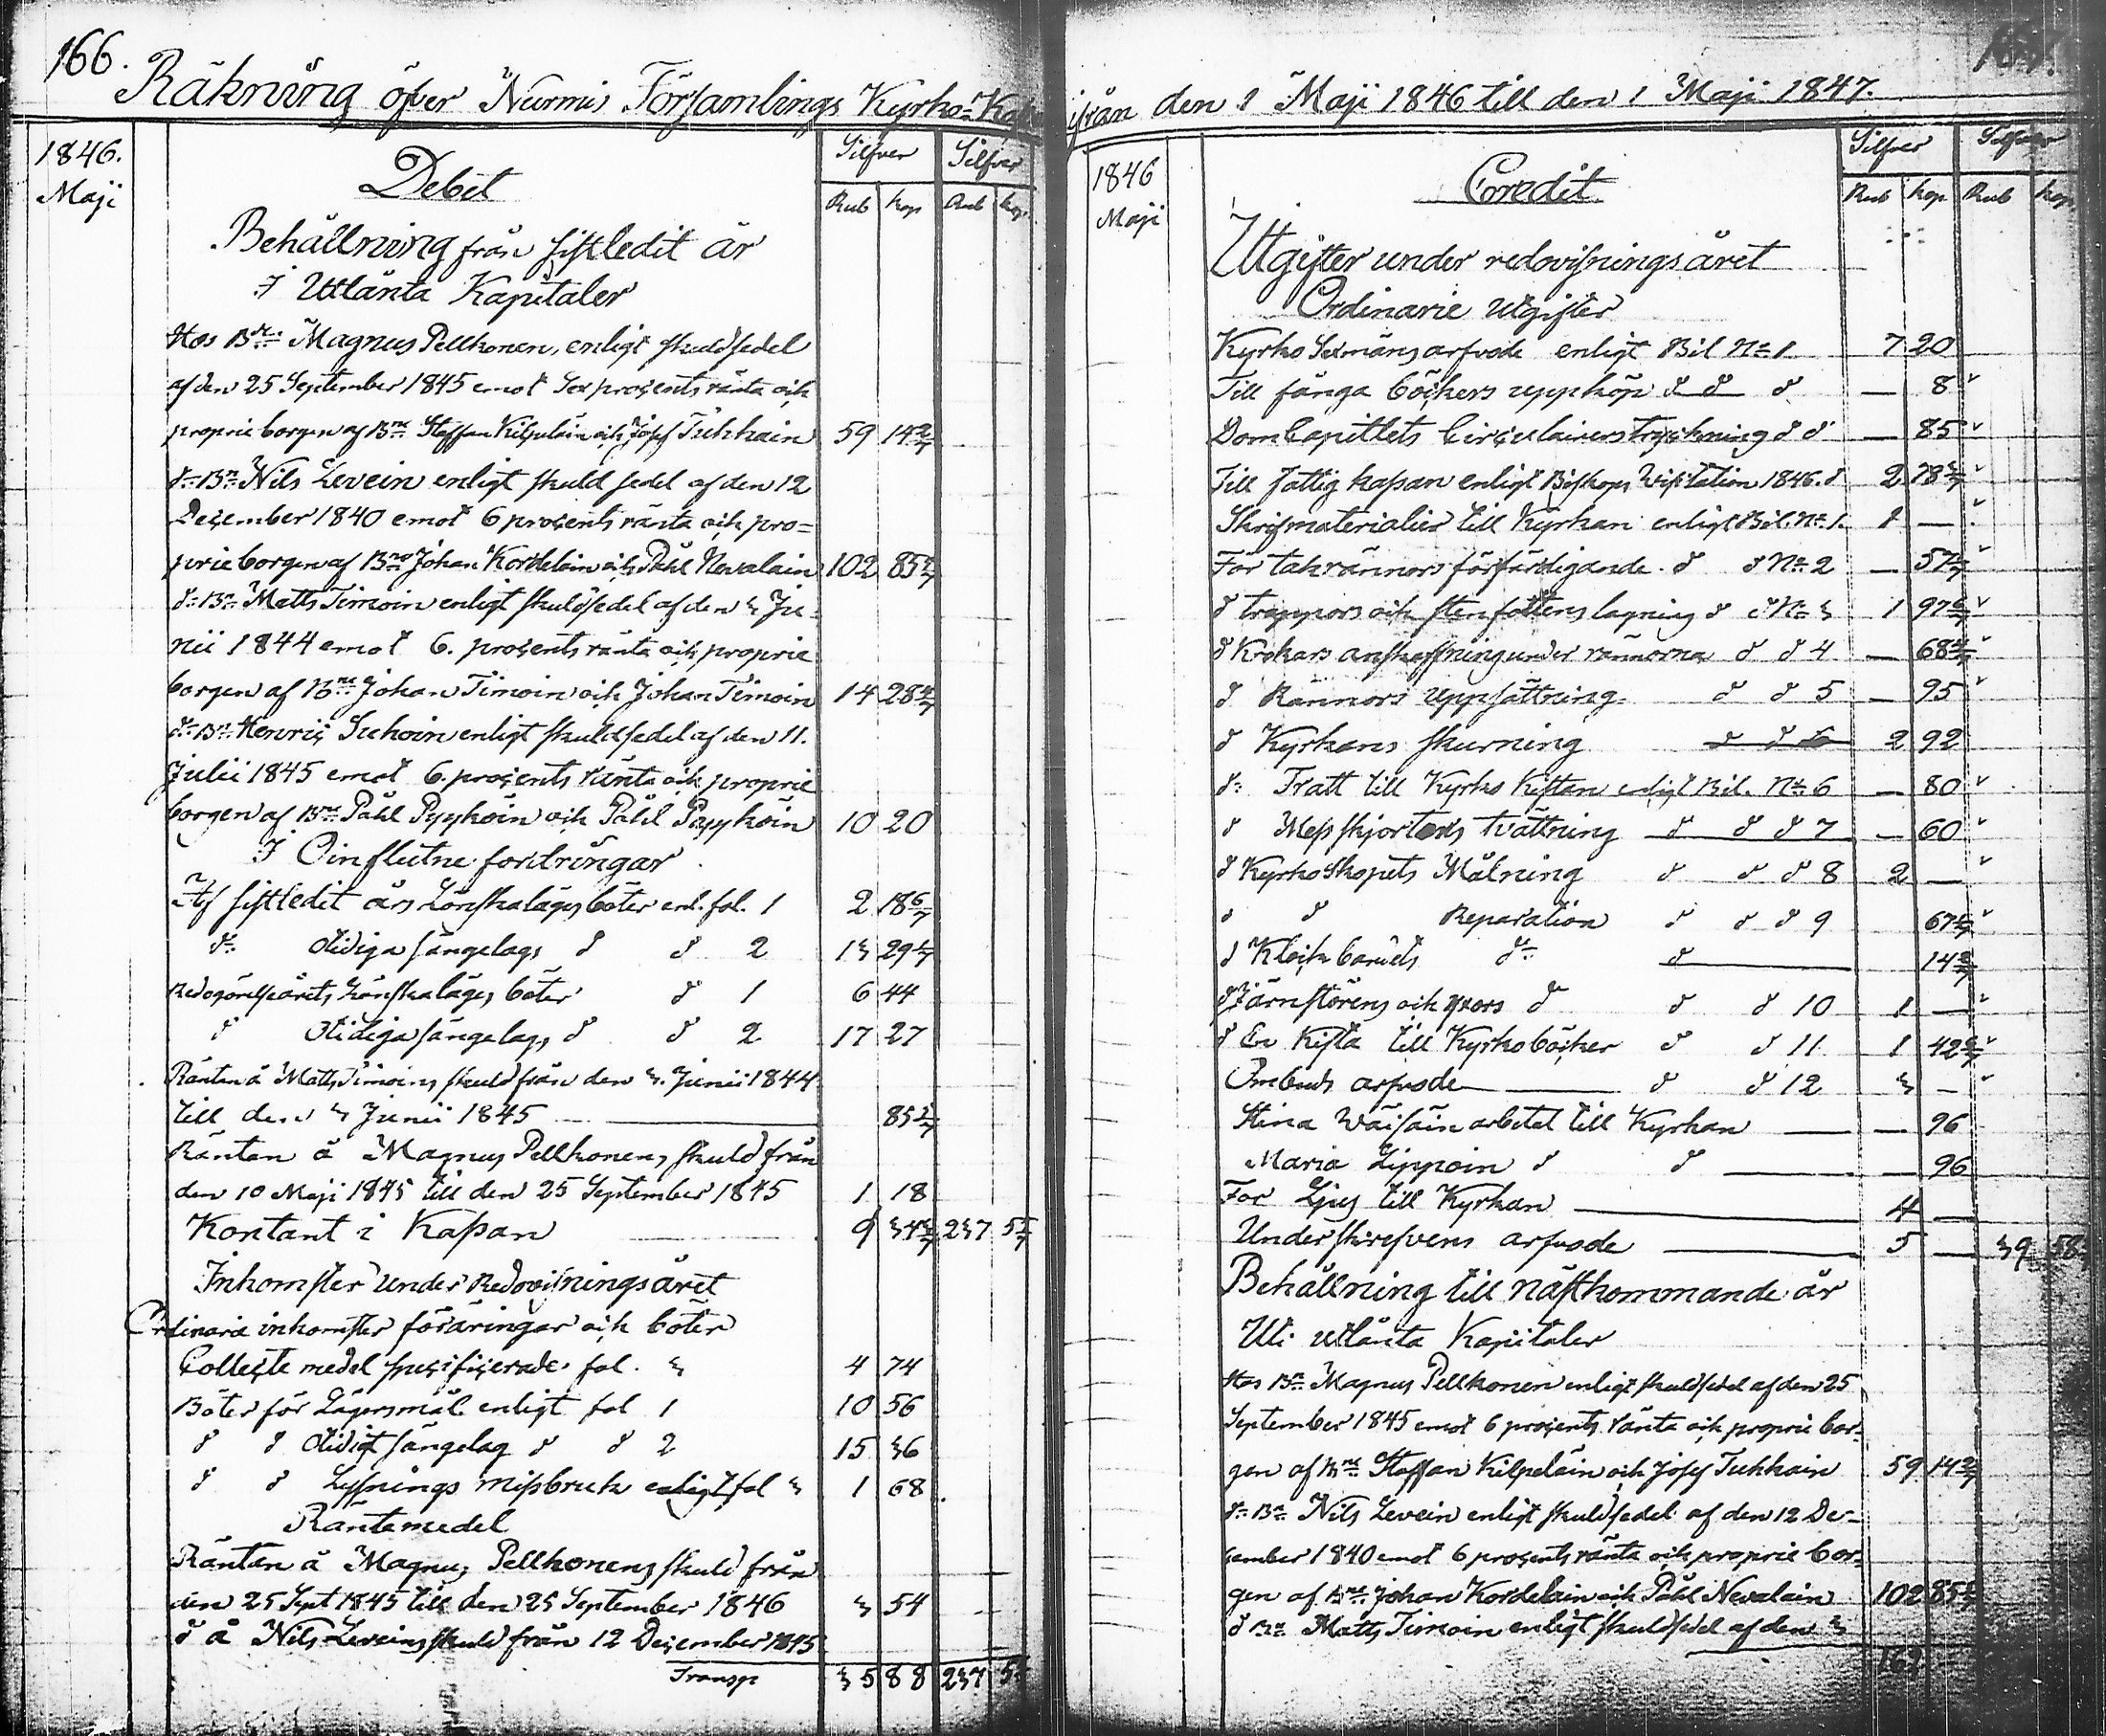 166.
Räkning öfver Nurmis Församlings Kyrko-Kassa
1846.
Maji
Debet
Silfver Silfver
Rub kop Rub kop
Behållning från sistledit år
I Utlänta Kapitaler
Hos Bdn Magnus Pellkonen, enligt skuldsedel
af den 25 September 1845 emot Sex procents ränta och
proprieborgen af Bne Staffan Kilpeläin och Josef Tuhkain 59 14 2/7
do Bn Nils Levein enligt skuldsedel af den 12
December 1840 emot 6 procents ränta och pro=
prieborgen af Bne Johan Kordelain och Påhl Nevalain 102 85 5/7
do Bn Matts Timoin enligt skuldsedel af den 3 Ju-
nii 1844 emot 6. procents ränta och proprie
borgen af Bne Johan Timoin och Johan Timoin 14 28 4/7
do Bn Henric Suhoin enligt skuldsedel af den 11.
Julii 1845 emot 6. procents ränta och proprie
borgen af Bne Påhl Pyyköin och Påhl Pyyköin 10 20
I Oinflutne fordringar
Af sistledit års Lönskaläges böter enl. fol. 1 2 18 6/7
do otidiga sängelags d d 2 13 29 4/7
Redogörelseårets Lönskaläges böter d 1 6 44
d Otidiga sängelags d d 2 17 27
Räntan å Matts Timoins skuld från den 3. Junii 1844
till den 3 Junii 1845 85 5/7
Räntan å Magnus Pellkonens skuld från
den 10 Maji 1845 till den 25 September 1845 1 18
Kontant i Kassan 9 34 3/7 237 5 5/7
Inkomster under Redovisningsåret
Ordinarie inkomster föräringar och böter
Collecte medel specificerade fol. 3 4 74
Böter för Lägersmål enligt fol 1 10 56
d d Otidigt sängelag d d 2 15 36
d d Lysnings missbruk enligt fol 3 1 68
Räntemedel
Räntan å Magnus Pellkonens skuld från
den 25 Sept 1845 till den 25 September 1846 3 54
d å Nils Leveins skuld från 12 December 1845
Transp 35 88 237 5
ifrån den 1 Maji 1846 till den 1 Maji 1847.
1846
Maji
Credit
Silfver Silfver
Rub kop Rub kop
Utgifter under redovisningsåret
Ordinarie utgifter
Kyrko Sexmäns arfvode enligt Bil No 1 7 20
Till fånga böckers uppköp d d d — 8
DomCapitlets Circulairers tryckning d d — 85
Till fattig kassan enligt Biskops Visitation 1846. d 2 78 4/7
Skrifmaterialier till Kyrkan enligt Bil. No 1. 1 —
För takrännors förfärdigande d d No 2 — 57 1/7
d trappors och stenfottens lagning d d No 3 1 97 6/7
d Krokars anskaffning under rännorna d d 4 — 68 4/7
d Rännors uppsättning d d 5 — 95
d Kyrkans skurning d d 6 2 92
do Tratt till Kyrko Kistan enligt Bil. No 6 — 80
d Messskjortens tvättning d d d 7 — 60
d Kyrko Skopets Målning d d d 8 2 —
d d Reparation d d d 9 67 4/7
d Klockbands do d 14 2/7
d Järnstörens och yxors d d d 10 1 —
d En Kista till Kyrkoböcker d d 11 1 42 6/7
Ombuds arfvode d d 12 3 —
Stina Väisäin arbetat till Kyrkan — 96
Maria Lippoin d d — 96
For Ljus till Kyrkan 4 —
Underskrefvens arfvode 5 — 39 58
Behållning till nästkommande år
Uti utlänta Kapitaler
Hos Bn Magnus Pellkonen enligt skuldsedel af den 25
September 1845 emot 6 procents ränta och proprie bor-
gen af Bne Staffan Kilpeläin och Josef Tuhkain 59 14 2/7
do Bn Nils Levein enligt skuldsedel af den 12 De-
cember 1840 emot 6 procents ränta och proprie bor-
gen af Bne Johan Kordelain och Påhl Nevalain 102 85 5/7
d Bn Matts Timoin enligt skuldsedel af den 3